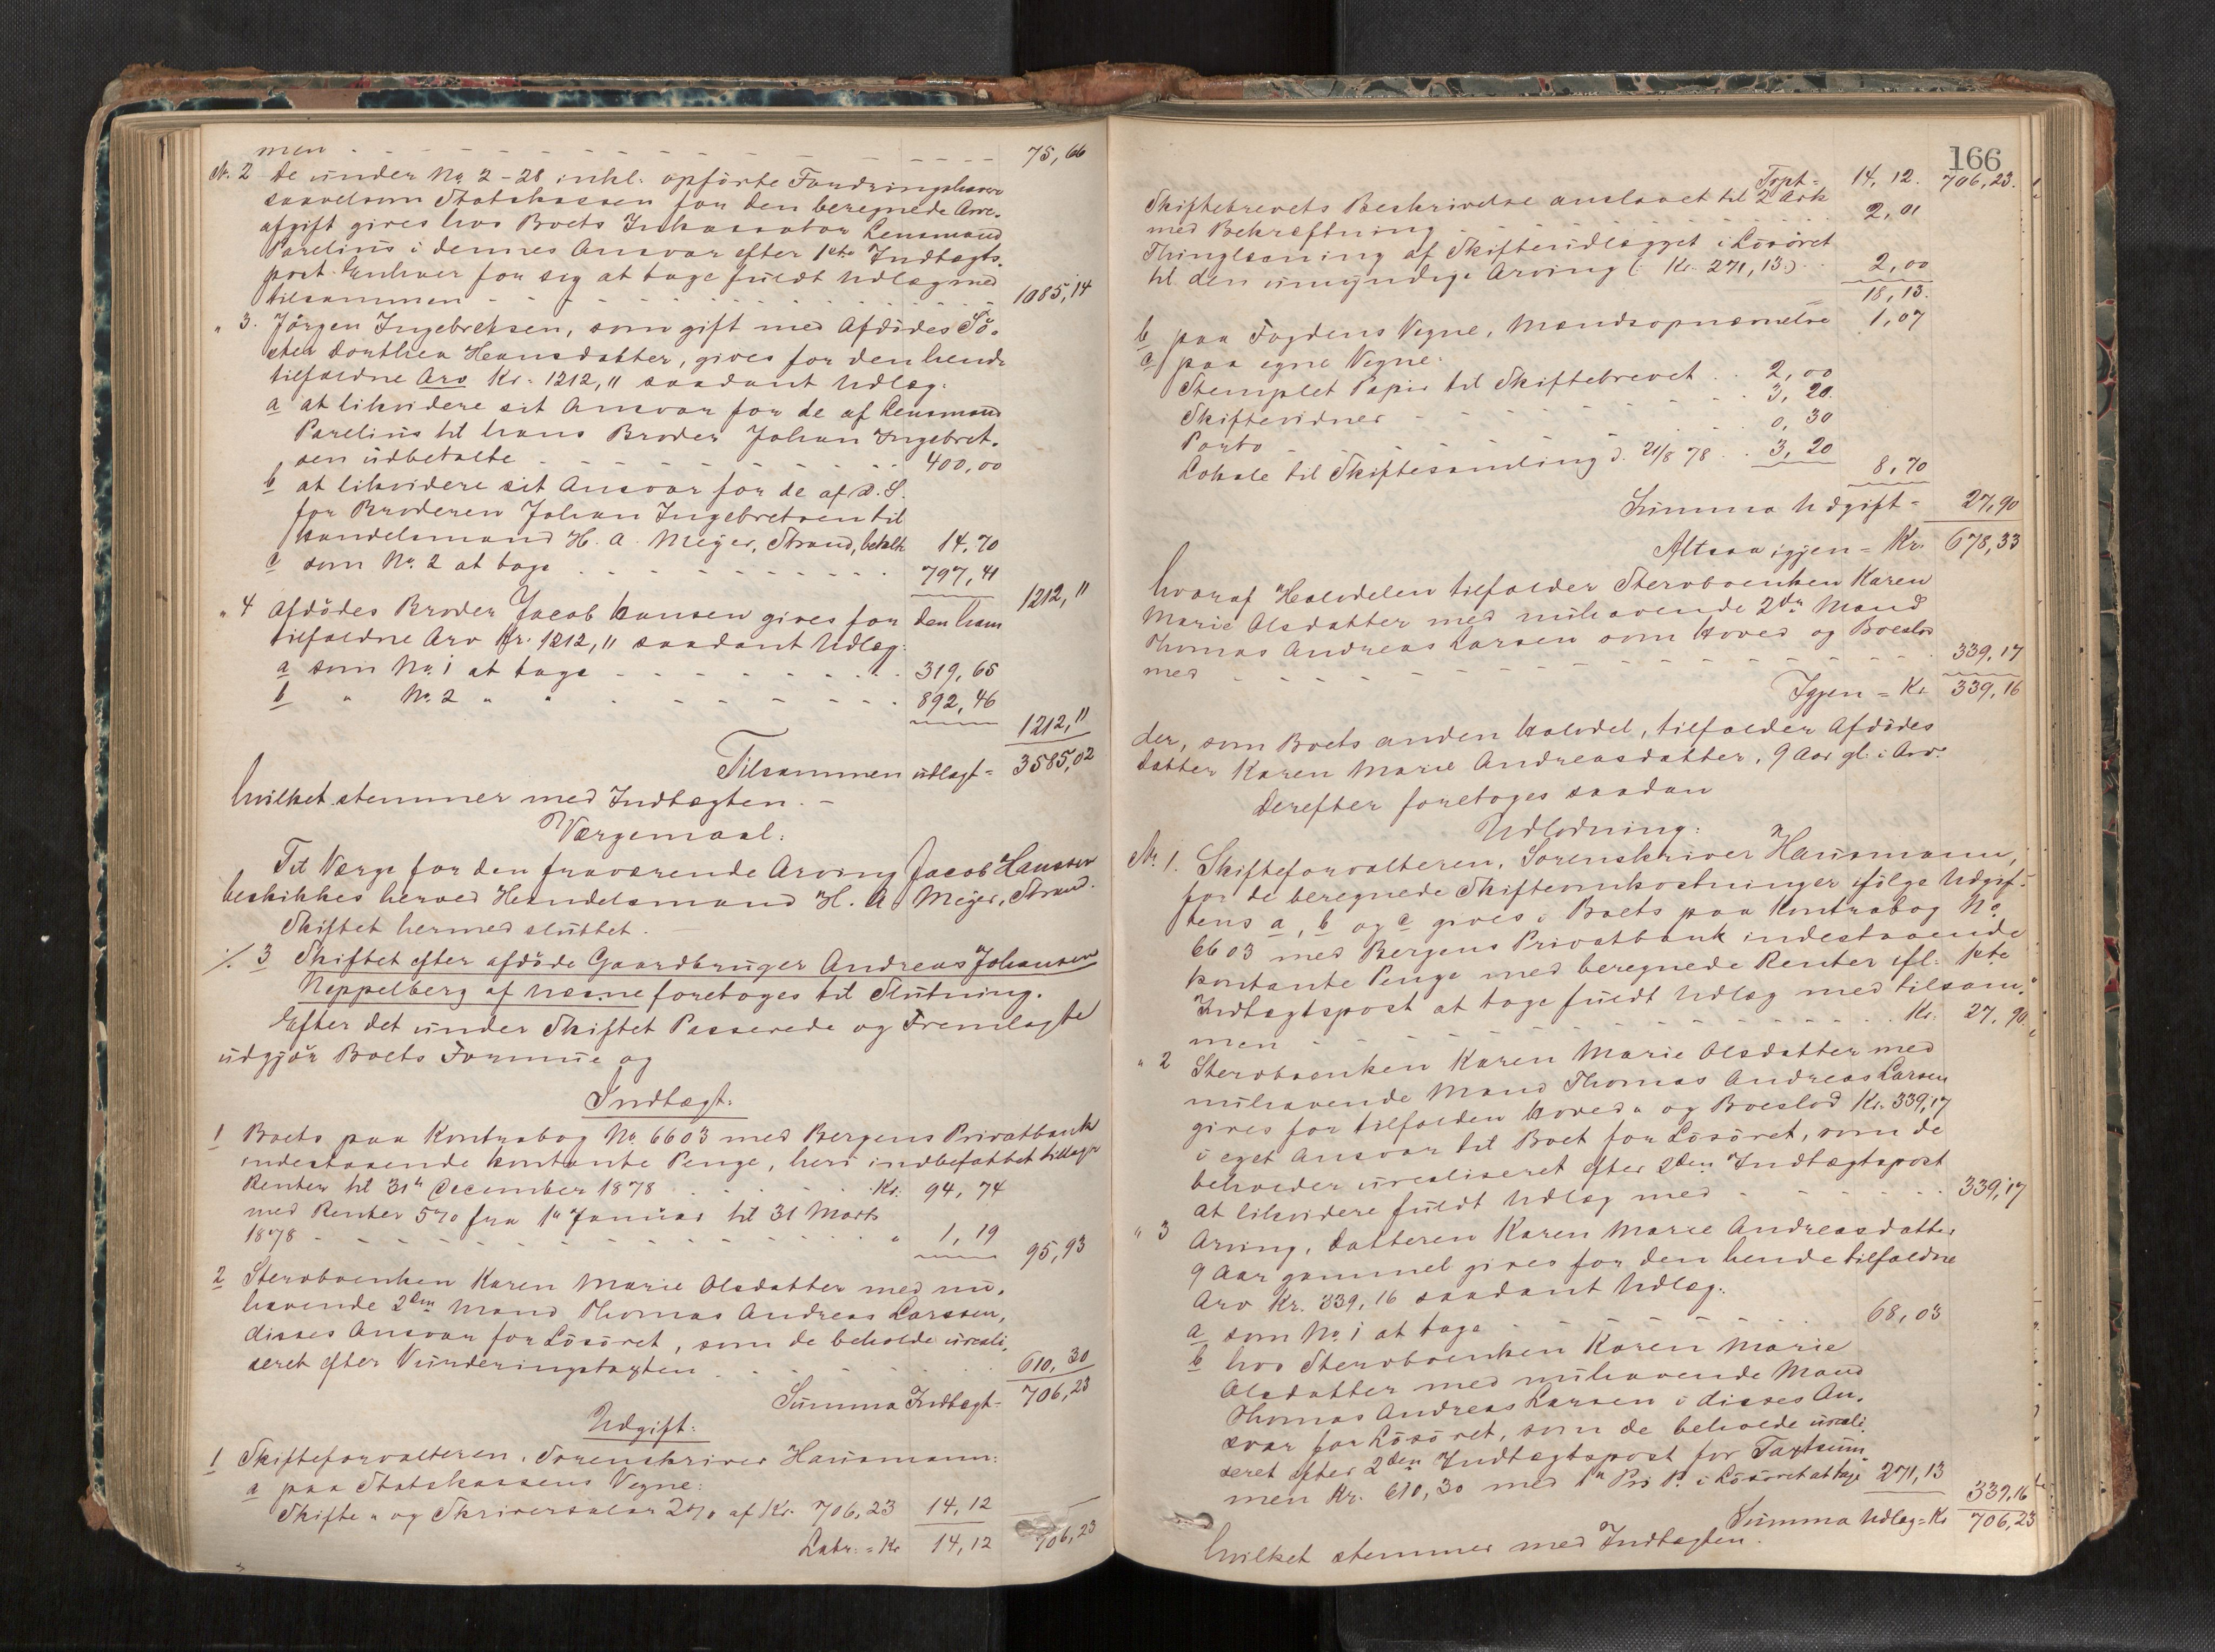 men - - - - - - - - - - - - 75,66
Nr. 2 De under No 2-28 inkl: opførte Fordringshavere
saavelsom Statskassen for den beregnede Arve-
afgift gives hos Boets Inkassator Lensmand
Parelius i dennes Ansvar efter 1ste Indtægts-
post Enhver for sig at tage fuldt Udlæg med
tilsammen - - - - - - - - - - 1085,14
" 3. Jørgen Ingebretsen, som gift med Afdødes Sø-
ster Dorthea Hansdatter, gives for den hende
tilfaldne Arv Kr. 1212,11 saadant Udlæg:
a at likvidere sit Ansvar for de af Lensmand
Parelius til hans Broder Johan Ingebret-
sen udbetalte - - - - - - - - 400,00
b at likvidere sit Ansvar for de af D. S.
for Broderen Johan Ingebretsen til
Handelsmand H. A. Meyer, Strand, betalte 14,70
c som No. 2 at tage - - - - - - - 797,41
1212,11
" 4 Afdødes Broder Jacob Hansen gives for den ham
tilfaldne Arv Kr. 1212,11 saadant Udlæg:
a som No. 1 at tage - - - - - - - 319,65
b " No. 2 " " - - - - - - 892,46
1212,11
Tilsammen udlagt = 3585,02
hvilket stemmer med Indtægten. -
Værgemaal:
Til Værge for den fraværende Arving Jacob Hansen
beskikkes herved Handelsmand H. A. Meyer, Strand.
Skiftet hermed sluttet.
./. 3 Skiftet efter afdøde Gaardbruger Andreas Johansen
Neppelberg af Næsne foretoges til Slutning.
Efter det under Skiftet Passerede og Fremlagte
udgjør Boets Formue og
Indtægt:
1 Boets paa Kontrabog No. 6603 med Bergens Privatbank
indestaaende kontante Penge, heri indbefattet tillagte
Renter til 31te December 1878 . . . . Kr. 94,74
med Renter 5% fra 1ste Januar til 31 Marts
1878 - - - - - - - - - - " 1,19
95,93
2 Stervboenken Karen Marie Olsdatter med nu-
havende 2den Mand Thomas Andreas Larssen,
disses Ansvar for Løsøret, som de beholde ureali-
seret efter Vurderingstaxten . . . . . 610,30
Summa Indtægt = 706,23
Udgift:
1 Skifteforvalteren, Sorenskriver Hausmann:
a paa Statskassens Vegne:
Skifte- og Skriversalær 2% af Kr. 706,23 14,12
Latr: = Kr 14,12 706,23
166
Trpt = 14,12. 706,23.
Skiftebrevets Beskrivelse anslaaet til 2 Ark
med Bekræftning . . . . . . . . 2,01
Thinglæsning af Skifteudlægget i Løsøret
til den umyndige Arving (: Kr. 271,13:) . . 2,00
18,13.
b paa Fogdens Vegne, Mandsopnævnelse 1,07
c paa egne Vegne:
Stemplet Papir til Skiftebrevet . . 2,00
Skiftevidner - - - - - - - 3,20.
Porto - - - - - - - 0,30
Lokale til Skiftesamling d. 21/8 78 . . 3,20
8,70
Summa Udgift = 27,90
Altsaa igjen = Kr. 678,33
hvoraf Halvdelen tilfalder Stervboenken Karen
Marie Olsdatter med nuhavende 2den Mand
Thomas Andreas Larsen som Hoved og Boeslod
med - - - - - - - - - - 339,17
Igjen = Kr 339,16
der, som Boets anden Halvdel, tilfalder Afdødes
Datter Karen Marie Andreasdatter, 9 Aar gl. i Arv.
Derefter foretoges saadan
Udlodning:
Nr. 1. Skifteforvalteren, Sorenskriver Hausmann,
for de beregnede Skifteomkostninger ifølge Udgif-
tens a, b og c gives i Boets paa Kontrabog No.
6603 med Bergens Privatbank indestaaende
kontante Penge med beregnede Renter ifl. 1ste
Indtægtspost at tage fuldt Udlæg med tilsam-
men - - - - - - - - - Kr. 27,90.
" 2 Stervboenken Karen Marie Olsdatter med
nuhavende Mand Thomas Andreas Larsen
gives for tilfalden Hoved- og Boeslod Kr. 339,17
i eget Ansvar til Boet for Løsøret, som de
beholder urealiseret efter 2den Indtægtspost
at likvidere fuldt Udlæg med - - - - 339,17
" 3 Arving, Datteren Karen Marie Andreasdatter
9 Aar gammel gives for den hende tilfaldne
Arv Kr. 339,16 saadant Udlæg:
a som No. 1 at tage - - - - - - 68,03
b hos Stervboenken Karen Marie
Olsdatter med nuhavende Mand
Thomas Andreas Larsen i disses An-
svar for Løsøret, som de beholde ureali-
seret efter 2den Indtægtspost for Taxtsum-
men Kr. 610,30 med 1ste Pri P. i Løsøret at tage 271,13
339,16
Summa Udlæg = Kr 706,23
hvilket stemmer med Indtægten.